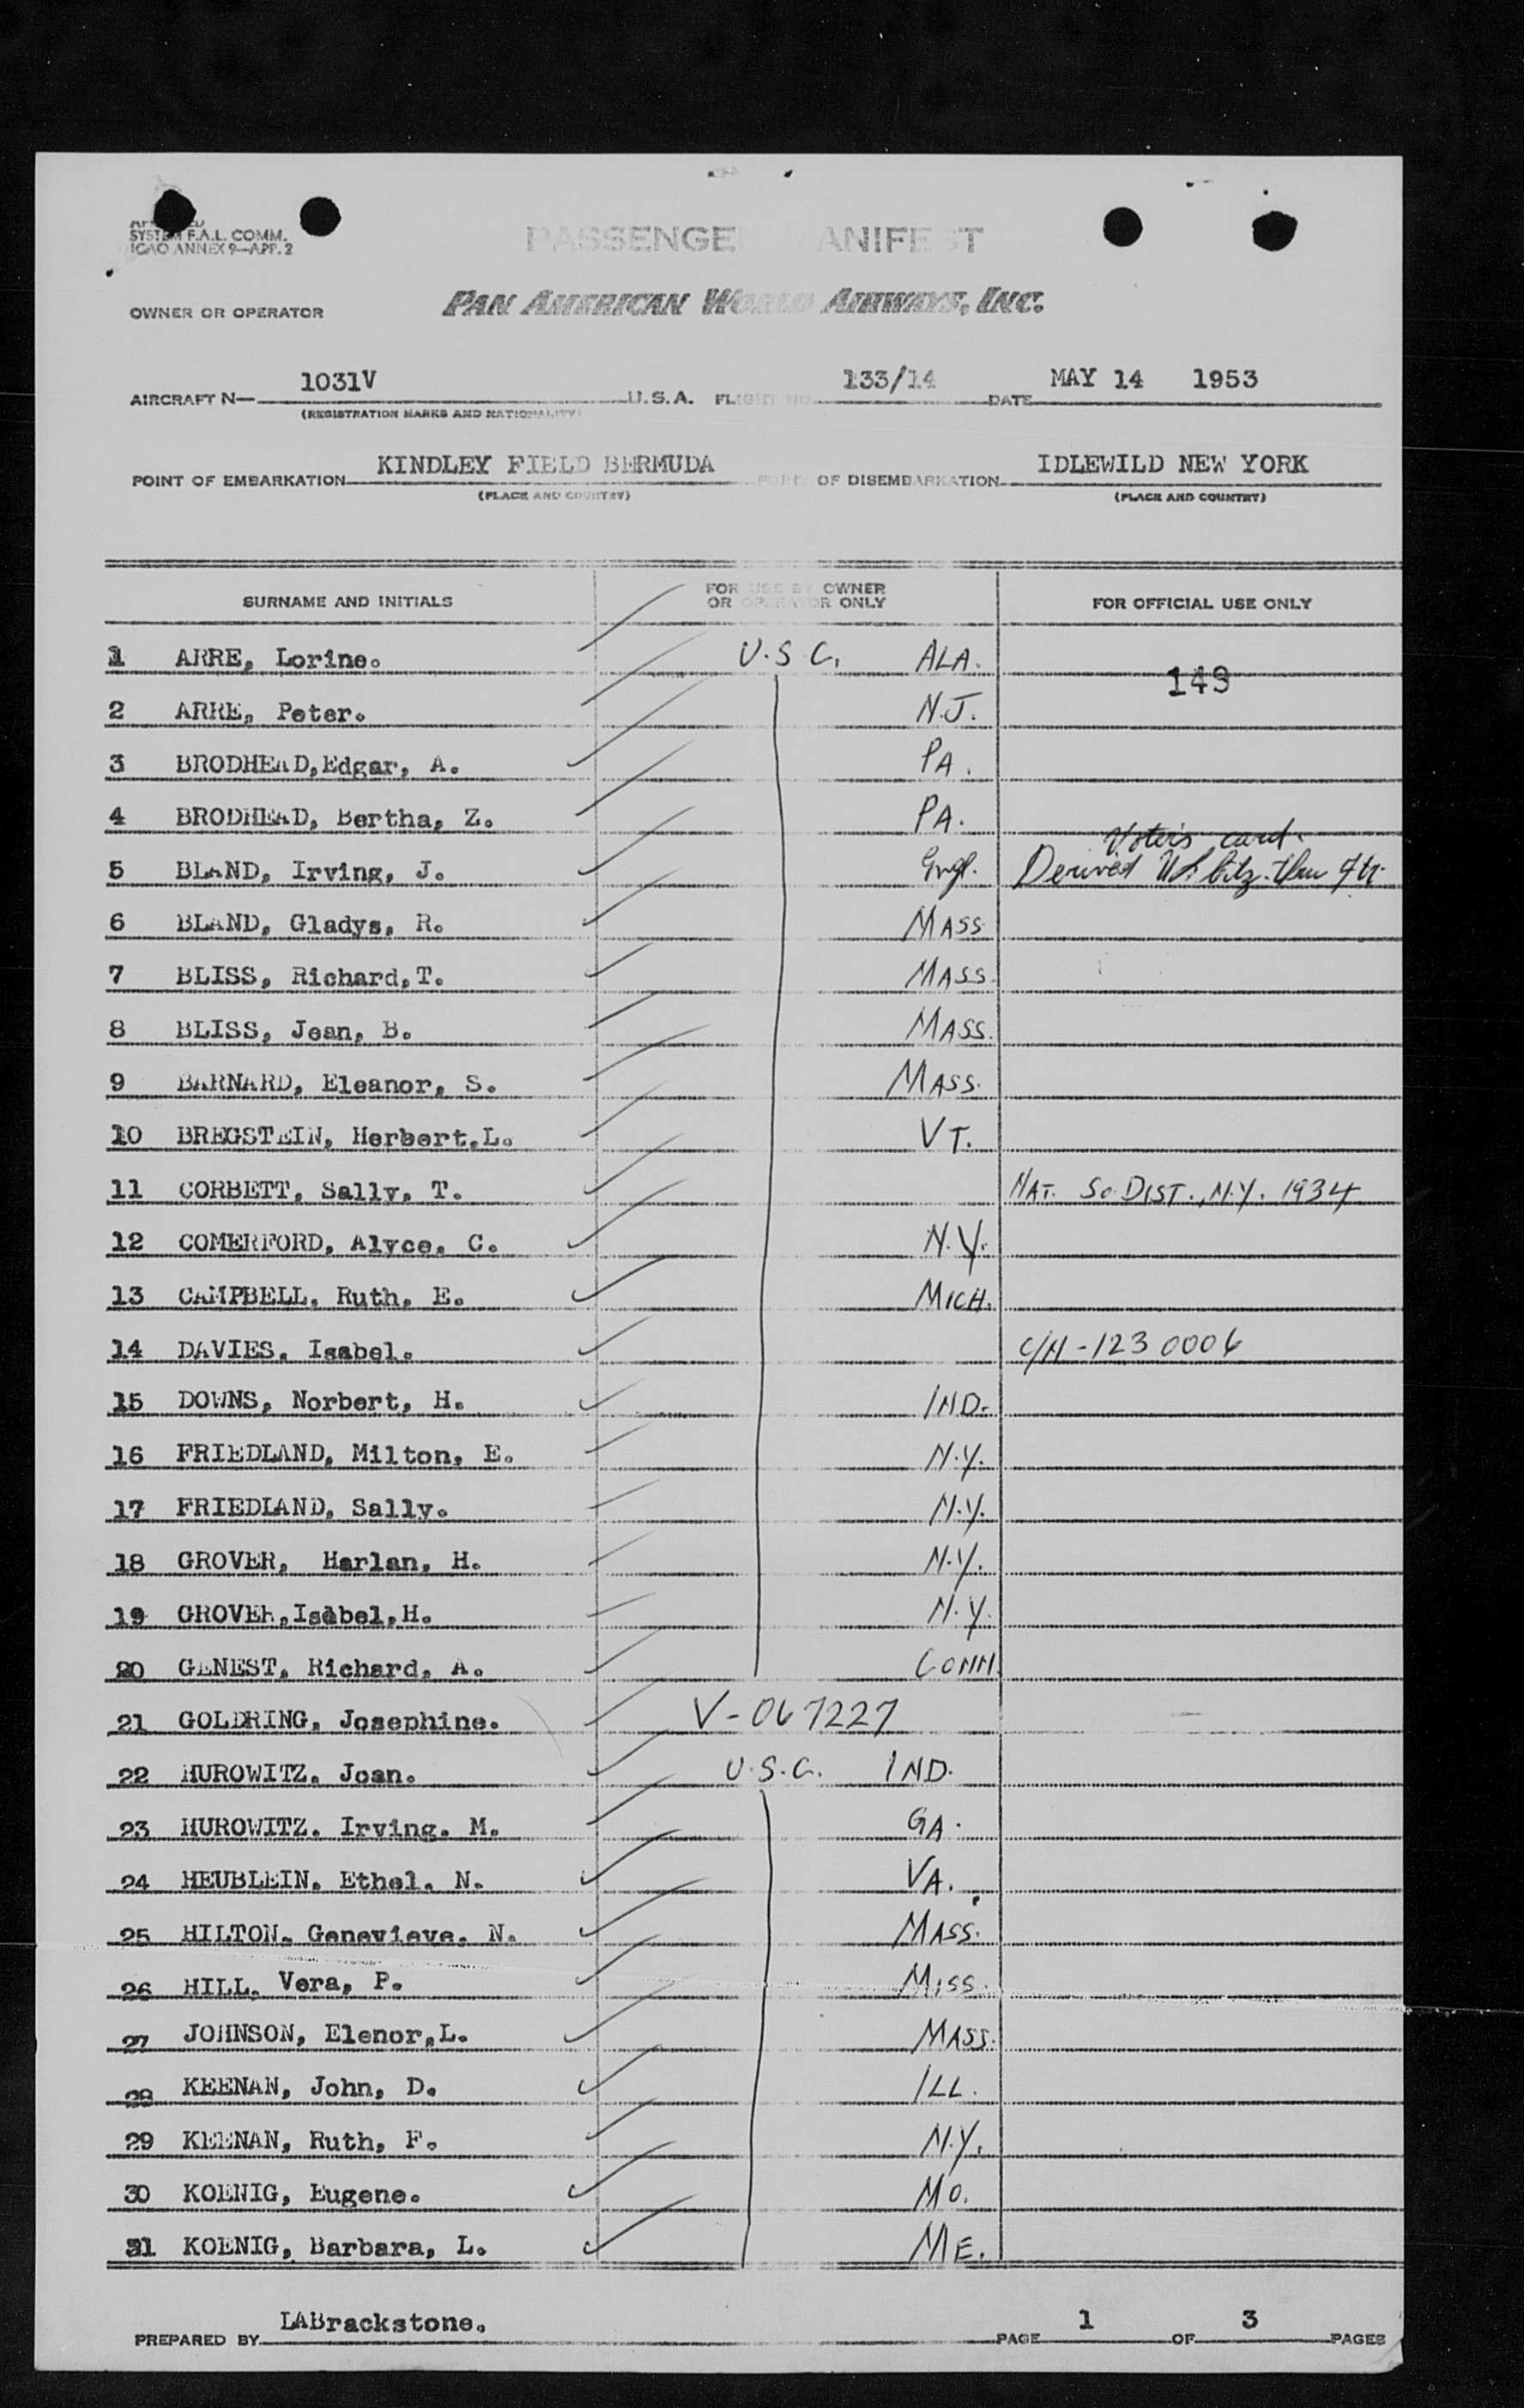 SYSTEM F.A.L. COMM.
ICAO ANNEX 9—APP. 2
PASSENGER MANIFEST
OWNER OR OPERATOR PAN AMERICAN WORLD AIRWAYS, INC.
AIRCRAFT N— 1031V U.S.A. FLIGHT NO. 133/14 DATE MAY 14 1953
(REGISTRATION MARKS AND NATIONALITY)
POINT OF EMBARKATION KINDLEY FIELD BERMUDA POINT OF DISEMBARKATION IDLEWILD NEW YORK
(PLACE AND COUNTRY) (PLACE AND COUNTRY)
SURNAME AND INITIALS FOR USE BY OWNER OR OPERATOR ONLY FOR OFFICIAL USE ONLY
1 ARRE, Lorine. U.S.C. ALA.
149
2 ARRE, Peter. N.J.
3 BRODHEAD,Edgar, A. PA.
4 BRODHEAD, Bertha, Z. PA.
Voter's card.
5 BLAND, Irving, J. Engl. Derived U.S. Citz. thru Fth.
6 BLAND, Gladys, R. MASS
7 BLISS, Richard,T. MASS.
8 BLISS, Jean, B. MASS.
9 BARNARD, Eleanor, S. MASS.
10 BREGSTEIN, Herbert,L. VT.
11 CORBETT, Sally, T. NAT. So. DIST., N.Y. 1934
12 COMERFORD, Alyce, C. N.Y.
13 CAMPBELL, Ruth, E. MICH.
14 DAVIES, Isabel. C/N-1230006
15 DOWNS, Norbert, H. IND.
16 FRIEDLAND, Milton, E. N.Y.
17 FRIEDLAND, Sally. N.Y.
18 GROVER, Harlan, H. N.Y.
19 GROVER,Isabel,H. N.Y.
20 GENEST, Richard, A. CONN.
21 GOLDRING, Josephine. V-067227
22 HUROWITZ, Joan. U.S.C. IND.
23 HUROWITZ, Irving, M. GA.
24 HEUBLEIN, Ethel, N. VA.
25 HILTON, Genevieve, N. MASS.
26 HILL, Vera, P. MISS.
27 JOHNSON, Elenor,L. MASS.
28 KEENAN, John, D. ILL.
29 KEENAN, Ruth, F. N.Y.
30 KOENIG, Eugene. MO.
31 KOENIG, Barbara, L. ME.
PREPARED BY LABrackstone. PAGE 1 OF 3 PAGES